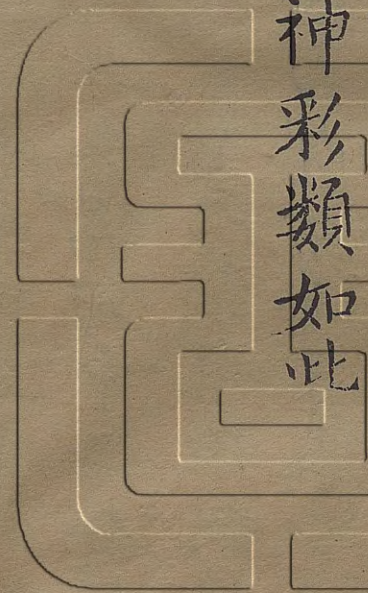 神彩類如此